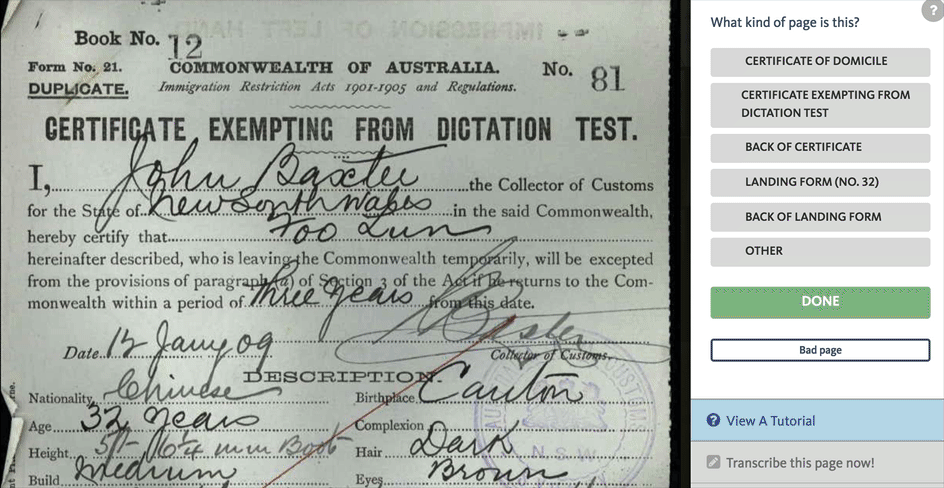 Book No. 12
Form No. 21.
COMMONWEALTH OF AUSTRALIA.
No. 81
DUPLICATE.
Immigration Restriction Acts 1901-1905 and Regulations.
CERTIFICATE EXEMPTING FROM DICTATION TEST.
I, John Baxter the Collector of Customs
for the State of New South Wales in the said Commonwealth,
hereby certify that Foo Lun
hereinafter described, who is leaving the Commonwealth temporarily, will be excepted
from the provisions of paragraph (a) of Section 3 of the Act if he returns to the Com-
monwealth within a period of Three years from this date.
Baxter
Date 12 Jany 09
Collector of Customs.
DESCRIPTION.
Nationality Chinese
Birthplace Canton
Age 32 years
Complexion
Height in Boots
Hair Dark
Build Medium
Eyes Brown
CUSTOMS
N.S.W.
What kind of page is this?
CERTIFICATE OF DOMICILE
CERTIFICATE EXEMPTING FROM
DICTATION TEST
BACK OF CERTIFICATE
LANDING FORM (NO. 32)
BACK OF LANDING FORM
OTHER
DONE
Bad page
? View A Tutorial
Transcribe this page now!
?